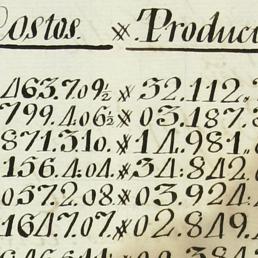 Costos. Produc
463.709½ 32.112.
799.406½ 03.187.3
871.310. 14.981.
156.4:04. 34:842.
057.2.08. 03.924:
1647.07. 02.849.